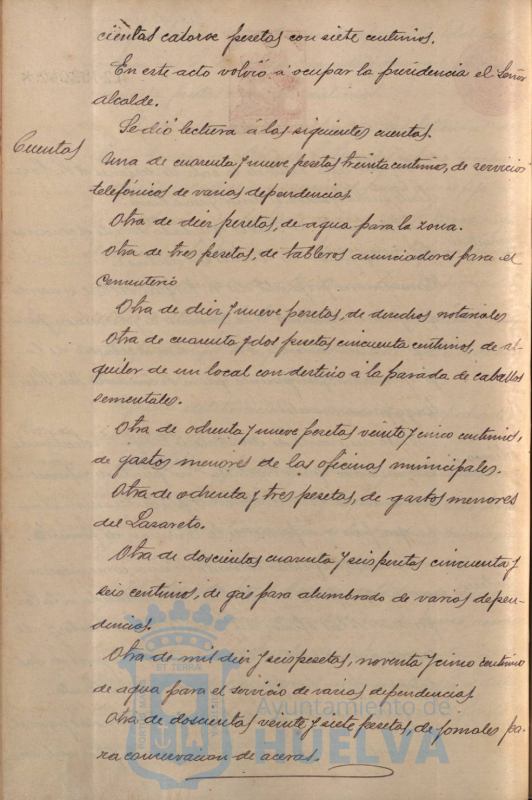 cientas catorce pesetas con siete centimos.
En este acto volvió á ocupar la presidencia el Señor
alcalde.
Se dió lectura á las siguientes cuentas.
Cuentas
Una de cuarenta y nueve pesetas treinta centimos, de servicios
telefónicos de varias dependencias
Otra de diez pesetas, de agua para la zona.
Otra de tres pesetas, de tableros anunciadores para el
cementerio
Otra de diez y nueve pesetas, de derechos notariales
Otra de cuarenta y dos pesetas cincuenta centimos, de al-
quiler de un local con destino á la parada de caballos
sementales.
Otra de ochenta y nueve pesetas veinte y cinco centimos,
de gastos menores de las oficinas municipales.
Otra de ochenta y tres pesetas, de gastos menores
del Lazareto.
Otra de doscientos cuarenta y seis pesetas cincuenta y
seis centimos, de gas para alumbrado de varias depen-
dencias.
Otra de mil diez y seis pesetas, noventa y cinco centimos
de agua para el servicio de varias dependencias
Otra de doscientas veinte y siete pesetas, de jornales pa-
ra conservacion de aceras.
Ayuntamiento de
HUELVA